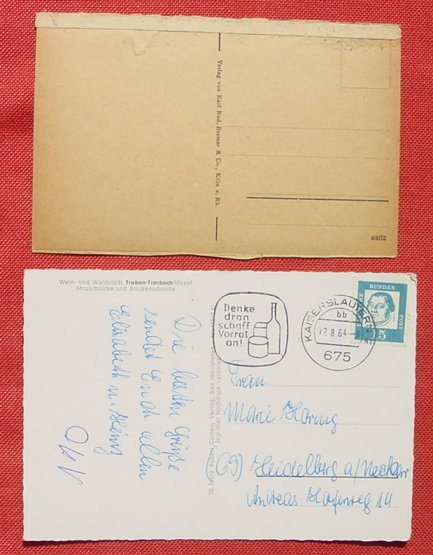 Verlag von Karl Rud. Bremer & Co., Köln a. Rh.
Wein- und Waldstadt Traben-Trarbach/Mosel
Moselbrücke und Brückenschenke
Die besten Grüße
sendet Euch allen
Elisabeth u. Heinz
Denke
dran
schaff
Vorrat
an!
KAISERSLAUTERN
bb
12.8.64
675
DEUTSCHE
BUNDES
POST
15
Frau
Marie Hornig
(69) Heidelberg a/Neckar
Andreas-Hoferweg 14